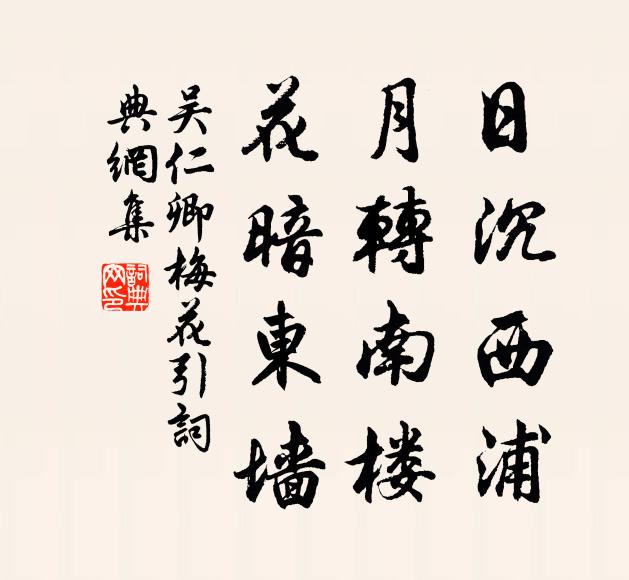 日沉西浦
月轉南楼
花暗東墙
吴仁卿梅花引詞
典網集
詞典網印